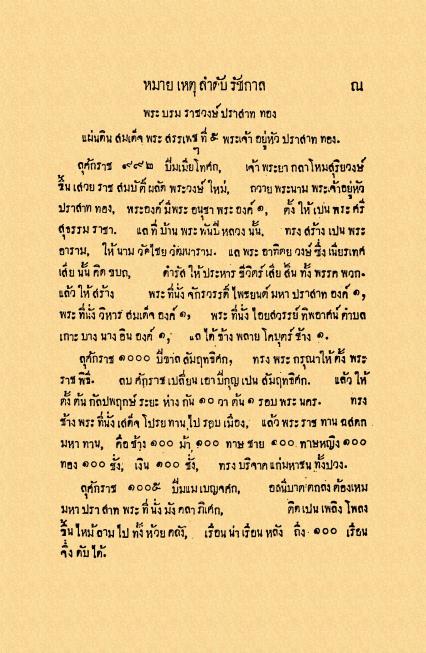 หมาย เหตุ ลำดับ รัชกาล ณ
พระ บรม ราชวงษ์ ปราสาท ทอง
แผ่นดิน สมเด็จ พระ สรรเพช ที่ ๕ พระเจ้า อยู่หัว ปราสาท ทอง.
จุศักราช ๙๙๒ ปีมเมียโทศก, เจ้า พระยา กลาโหมสุริยวงษ์
ขึ้น เสวย ราช สมบัติ ผลัด พระวงษ์ ใหม่, ถวาย พระนาม พระเจ้าอยู่หัว
ปราสาท ทอง, พระองค์ มีพระ อนุชา พระ องค์ ๑, ตั้ง ให้ เปน พระ ศรี
สุธรรม ราชา. แล ที่ บ้าน พระ พันปี หลวง นั้น. ทรง สร้าง เปน พระ
อาราม, ให้ นาม วัดไชย วัฒนาราม. แล พระ อาทิตย วงษ์ ซึ่ง เนียรเทศ
เสีย นั้น คิด ขบถ, ดำรัส ให้ ประหาร ชีวิตร์ เสีย สิ้น ทั้ง พรรค พวก.
แล้ว ให้ สร้าง พระ ที่นั่ง จักรวรรดิ์ ไพชยนต์ มหา ปราสาท องค์ ๑,
พระ ที่นั่ง วิหาร สมเด็จ องค์ ๑, พระ ที่นั่ง ไอยสวรรย์ ทิพอาสน์ ตำบล
เกาะ บาง นาง อิน องค์ ๑, แล ได้ ช้าง พลาย โคบุตร์ ช้าง ๑.
จุศักราช ๑๐๐๐ ปีขาล สัมฤทธิศก, ทรง พระ กรุณาให้ ตั้ง พระ
ราช พิธี. ลบ ศักราช เปลี่ยน เอา ปีกุญ เปน สัมฤทธิศก. แล้ว ให้
ตั้ง ต้น กัลปพฤกษ์ ระยะ ห่าง กัน ๑๐ วา ต้น ๑ รอบ พระ นคร. ทรง
ช้าง พระ ที่นั่ง เสด็จ โปรย ทาน ไป รอบ เมือง, แล้ว พระ ราช ทาน ฉลดก
มหา ทาน, คือ ช้าง ๑๐๐ ม้า ๑๐๐ ทาษ ชาย ๑๐๐ ทาษหญิง ๑๐๐
ทอง ๑๐๐ ชั่ง, เงิน ๑๐๐ ชั่ง, ทรง บริจาค แก่มหาชน ทั้งปวง.
จุศักราช ๑๐๐๕ ปีมแม เบญจศก, อสนีบาต ตกลง ต้องเหม
มหา ปรา สาท พระ ที่ นั่ง มัง คลา ภิเศก, ติด เปน เพลิง โพลง
ขึ้น ไหม้ ลาม ไป ทั้ง ห้วย คลัง, เรือน น่า เรือน หลัง ถึง ๑๐๐ เรือน
จึ่ง ดับ ได้.